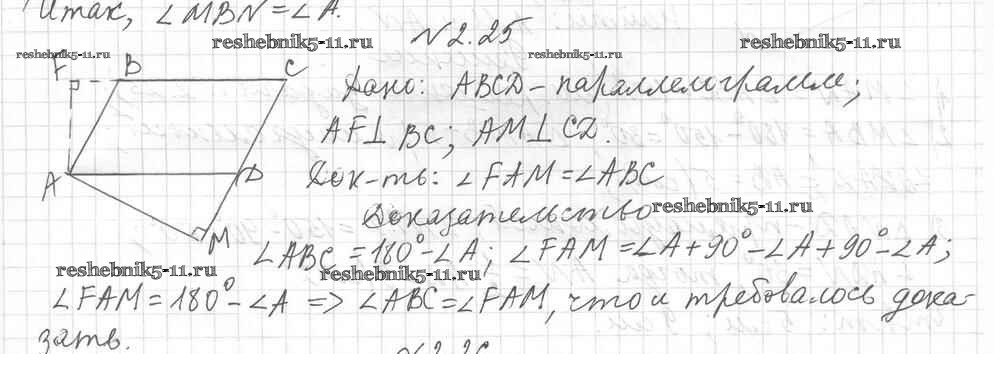 Итак, ∠MBN = ∠A.
reshebnik5-11.ru
№2.25
reshebnik5-11.ru
reshebnik5-11.ru
reshebnik5-11.ru
F B C
Дано: ABCD – параллелограмм;
AF⊥BC; AM⊥CD.
A D
Док-ть: ∠FAM = ∠ABC
Доказательство
reshebnik5-11.ru
M
∠ABC = 180° – ∠A; ∠FAM = ∠A + 90° – ∠A + 90° – ∠A;
reshebnik5-11.ru
reshebnik5-11.ru
∠FAM = 180° – ∠A => ∠ABC = ∠FAM, что и требовалось дока-
зать.